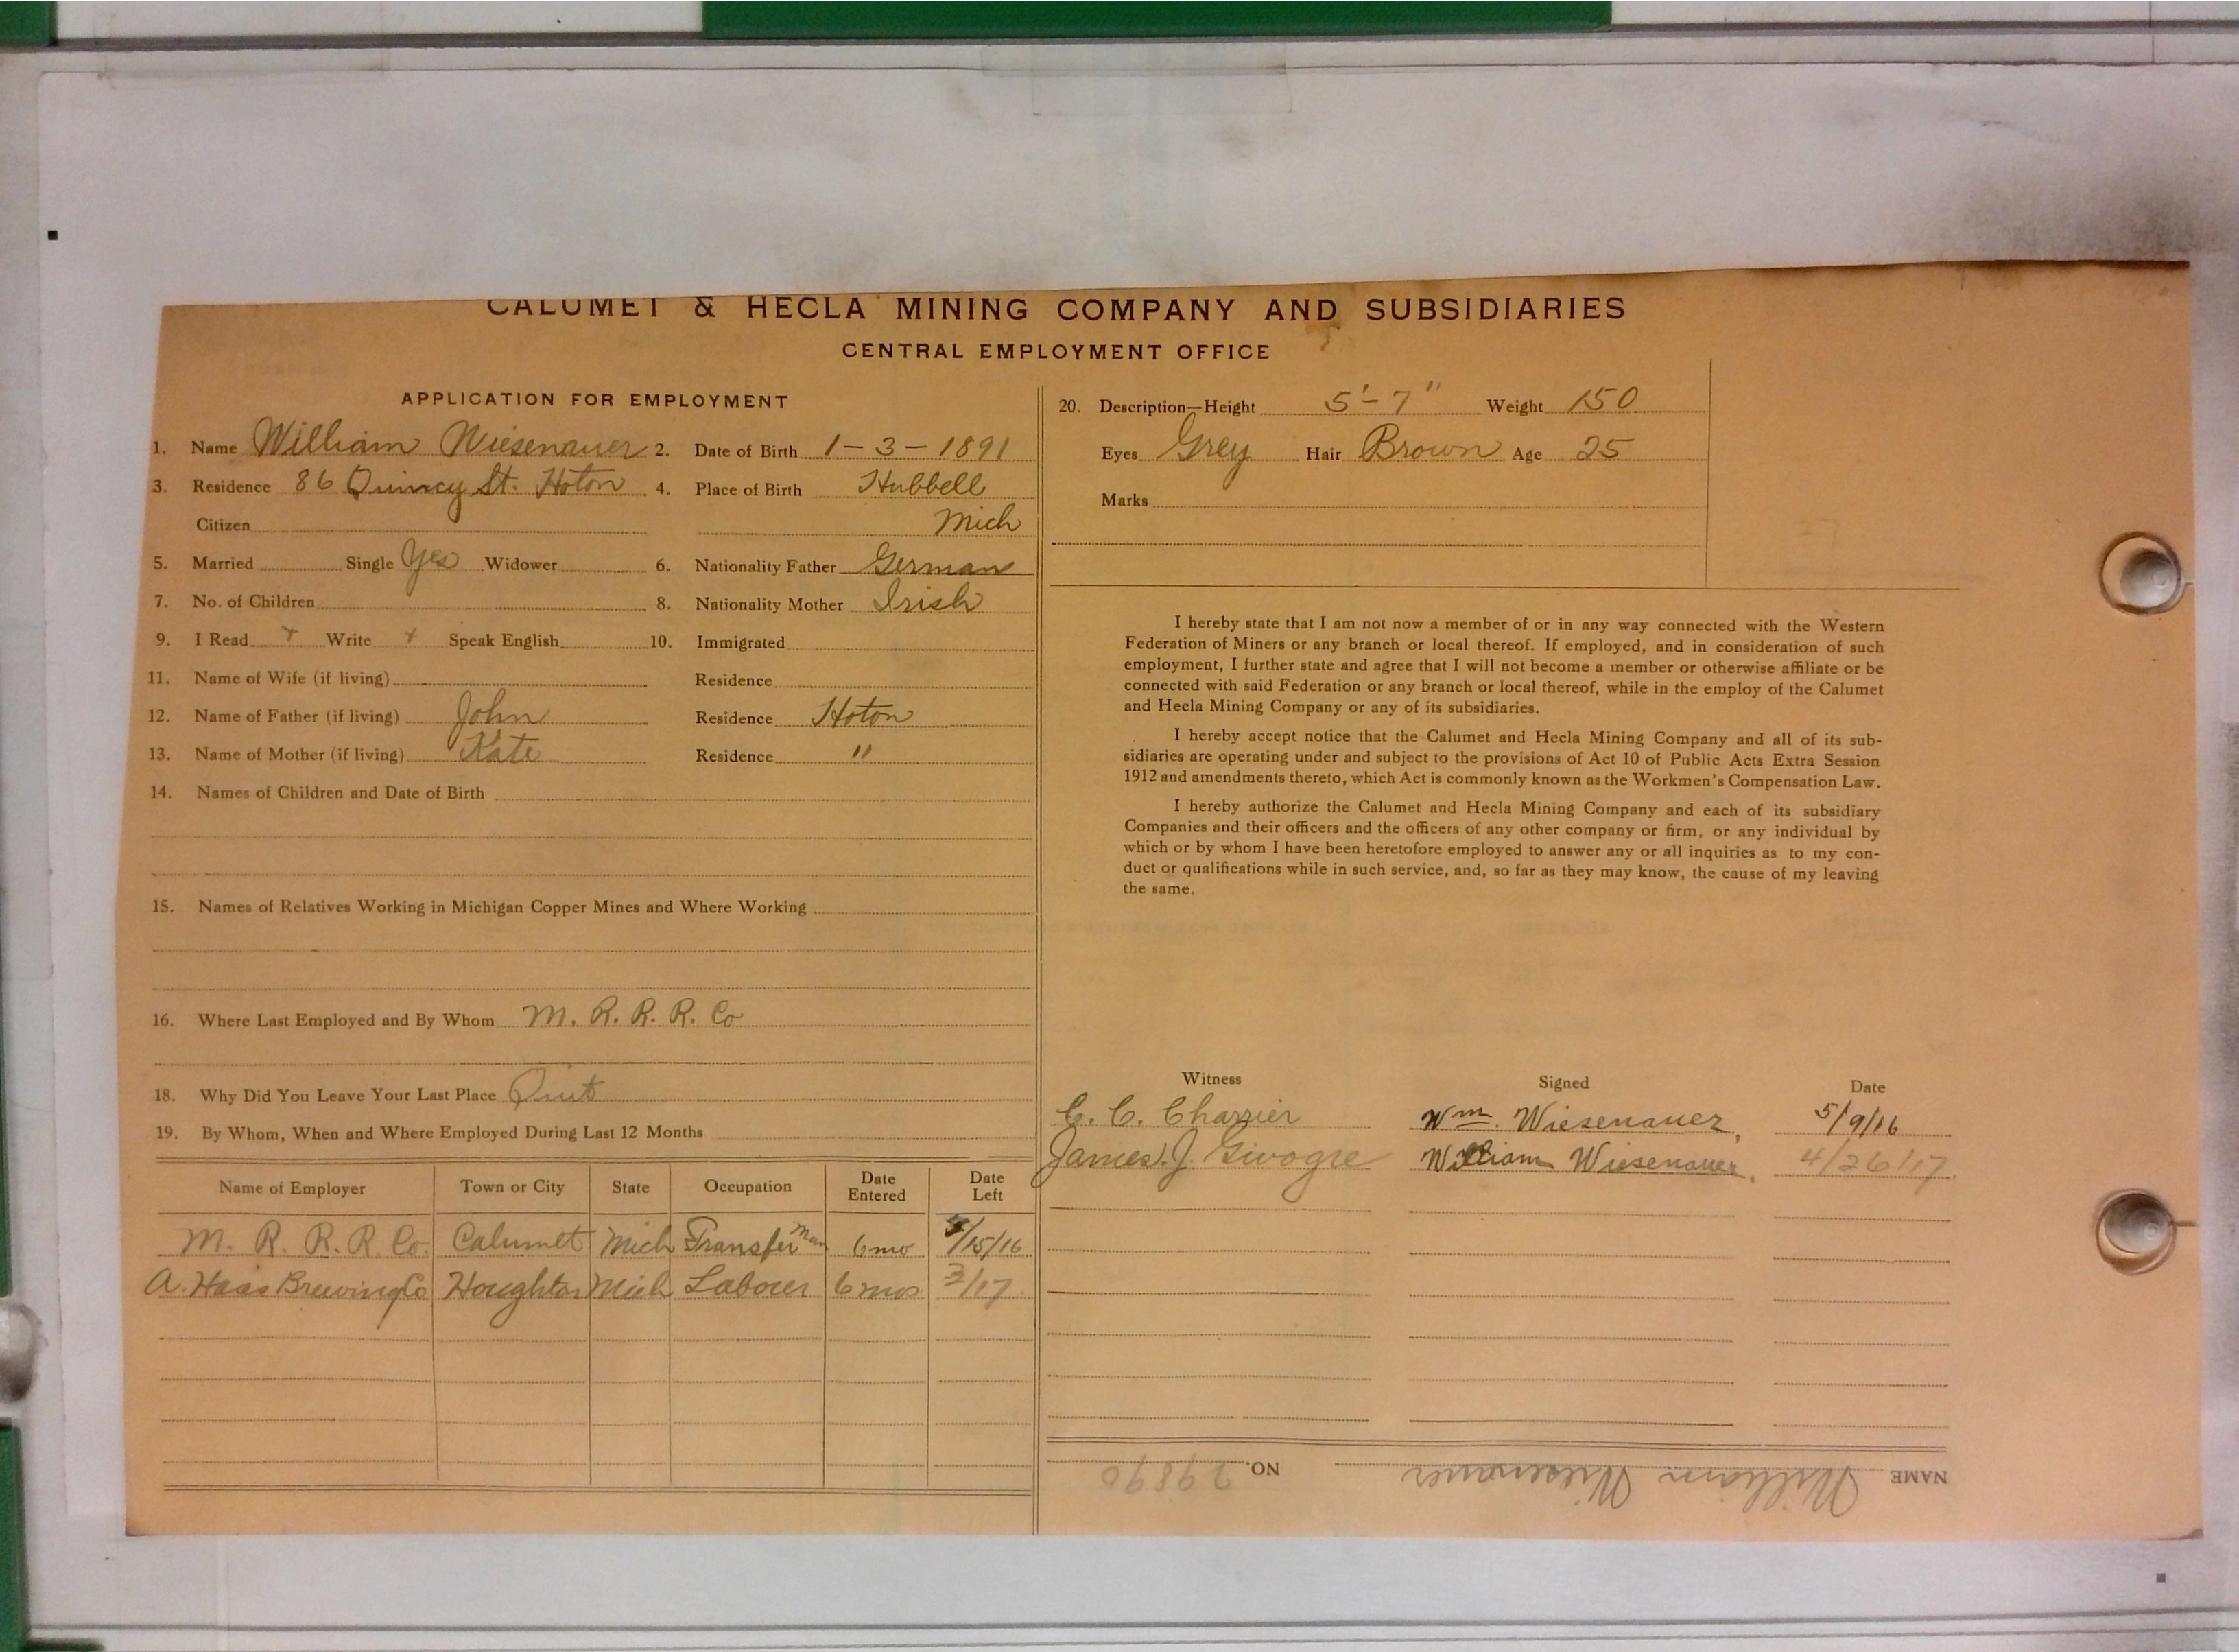 CALUMET & HECLA MINING COMPANY AND SUBSIDIARIES
CENTRAL EMPLOYMENT OFFICE
APPLICATION FOR EMPLOYMENT
1. Name William Wiesenauer 2. Date of Birth 1-3-1891
3. Residence 86 Quincy St. Hoton 4. Place of Birth Hubbell
Citizen Mich
5. Married Single Yes Widower 6. Nationality Father German
7. No. of Children 8. Nationality Mother Irish
9. I Read + Write + Speak English 10. Immigrated
11. Name of Wife (if living) Residence
12. Name of Father (if living) John Residence Hoton
13. Name of Mother (if living) Kate Residence "
14. Names of Children and Date of Birth
15. Names of Relatives Working in Michigan Copper Mines and Where Working
16. Where Last Employed and By Whom M. R. R. R. Co
18. Why Did You Leave Your Last Place Quit
19. By Whom, When and Where Employed During Last 12 Months
Name of Employer Town or City State Occupation Date Entered Date Left
M. R. R. R. Co. Calumet Mich Transfer Man 6 mo /15/16
A. Haas Brewing Co Houghton Mich Laborer 6 mos 3/17
20. Description—Height 5'-7" Weight 150
Eyes Grey Hair Brown Age 25
Marks
I hereby state that I am not now a member of or in any way connected with the Western
Federation of Miners or any branch or local thereof. If employed, and in consideration of such
employment, I further state and agree that I will not become a member or otherwise affiliate or be
connected with said Federation or any branch or local thereof, while in the employ of the Calumet
and Hecla Mining Company or any of its subsidiaries.
I hereby accept notice that the Calumet and Hecla Mining Company and all of its sub-
sidiaries are operating under and subject to the provisions of Act 10 of Public Acts Extra Session
1912 and amendments thereto, which Act is commonly known as the Workmen's Compensation Law.
I hereby authorize the Calumet and Hecla Mining Company and each of its subsidiary
Companies and their officers and the officers of any other company or firm, or any individual by
which or by whom I have been heretofore employed to answer any or all inquiries as to my con-
duct or qualifications while in such service, and, so far as they may know, the cause of my leaving
the same.
Witness Signed Date
C. C. Charrier Wm. Wiesenauer, 5/9/16
James. J. William Wiesenauer, 4/26/17
NAME William Wiesenauer NO. 29890